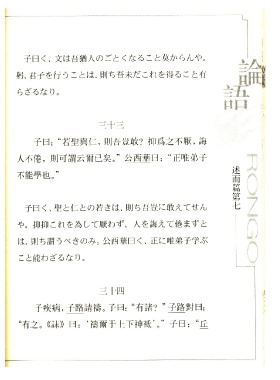 子曰く、文は吾猶人のごとくなること莫からんや。
躬、君子を行うことは、則ち吾未だこれを得ること有
らざるなり。
三十三
子曰：“若聖與仁，則吾豈敢？抑爲之不厭、誨
人不倦，則可謂云爾已矣。”公西華曰：“正唯弟子
不能學也。”
子曰く、聖と仁との若きは、則ち吾豈に敢えてせん
や。抑抑これを為して厭わず、人を誨えて倦まずと
は、則ち謂うべきのみ。公西華曰く、正に唯弟子学ぶ
こと能わざるなり。
三十四
子疾病，子路請禱。子曰：“有諸？”子路對曰：
“有之。《誄》曰：‘禱爾于上下神祗’。”子曰：“丘
論語
RONGO
述而篇第七